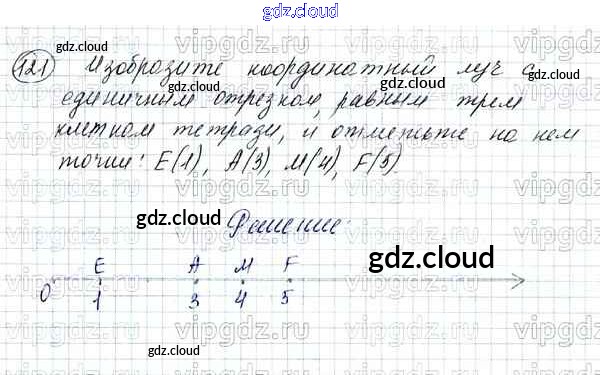 gdz.cloud
121 Изобразите координатный луч с
единичным отрезком, равным трем
клеткам тетради, и отметьте на нем
точки: E(1), A(3), M(4), F(5).
gdz.cloud
Решение
E A M F
0 1 3 4 5
gdz.cloud
gdz.cloud
gdz.cloud
gdz.cloud
gdz.cloud
vipgdz.ru